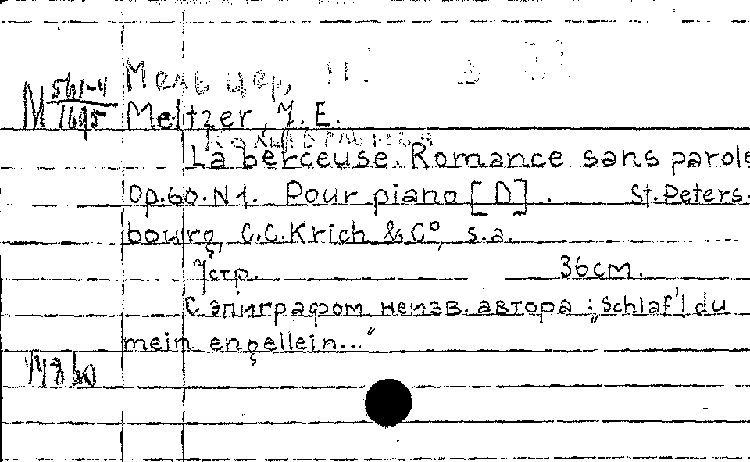 Мельцер,
М 561-4
1695
Meltzer, J. E.
Колыбельная
La berceuse. Romance sans parole
Op.60.N1. Pour piano [D]. St.Peters-
bourg, C.C.Krich & C°, s.a.
7стр. 36см.
С эпиграфом неизв. автора: „Schlaf'l du
mein engellein..."